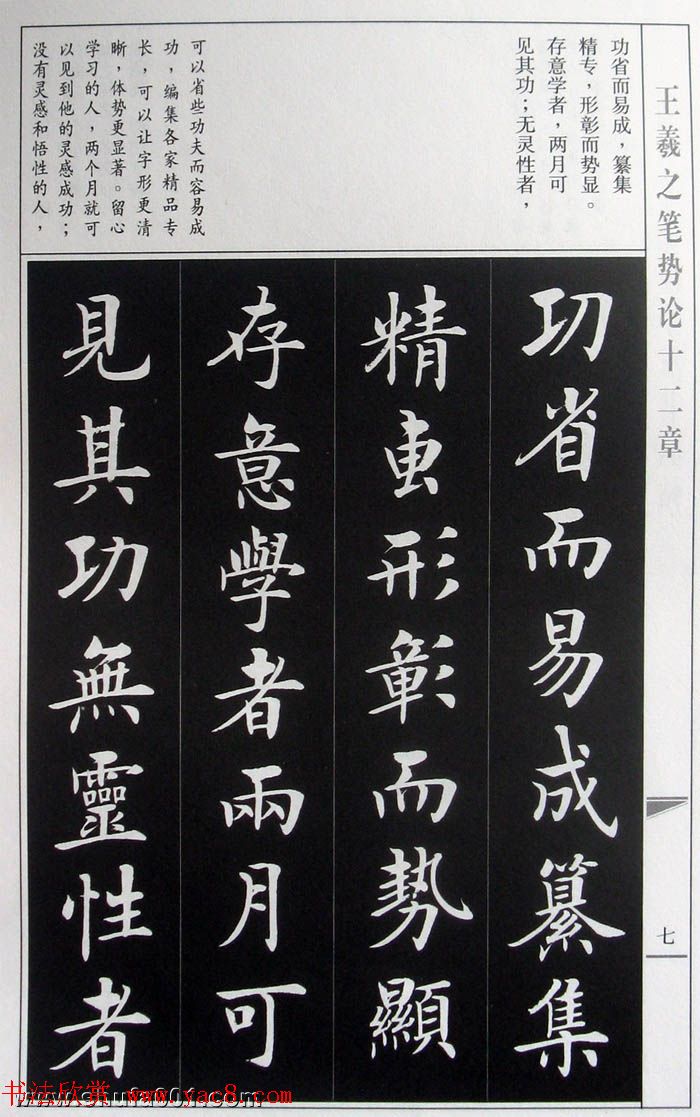 王羲之笔势论十二章
七
功省而易成，纂集
精专，形彰而势显。
存意学者，两月可
见其功；无灵性者，
可以省些功夫而容易成
功，编集各家精品专
长，可以让字形更清
晰，体势更显著。留心
学习的人，两个月就可
以见到他的灵感成功；
没有灵感和悟性的人，
功省而易成纂集
精專形彰而勢顯
存意學者兩月可
見其功無靈性者
书法欣赏 www.yac8.com